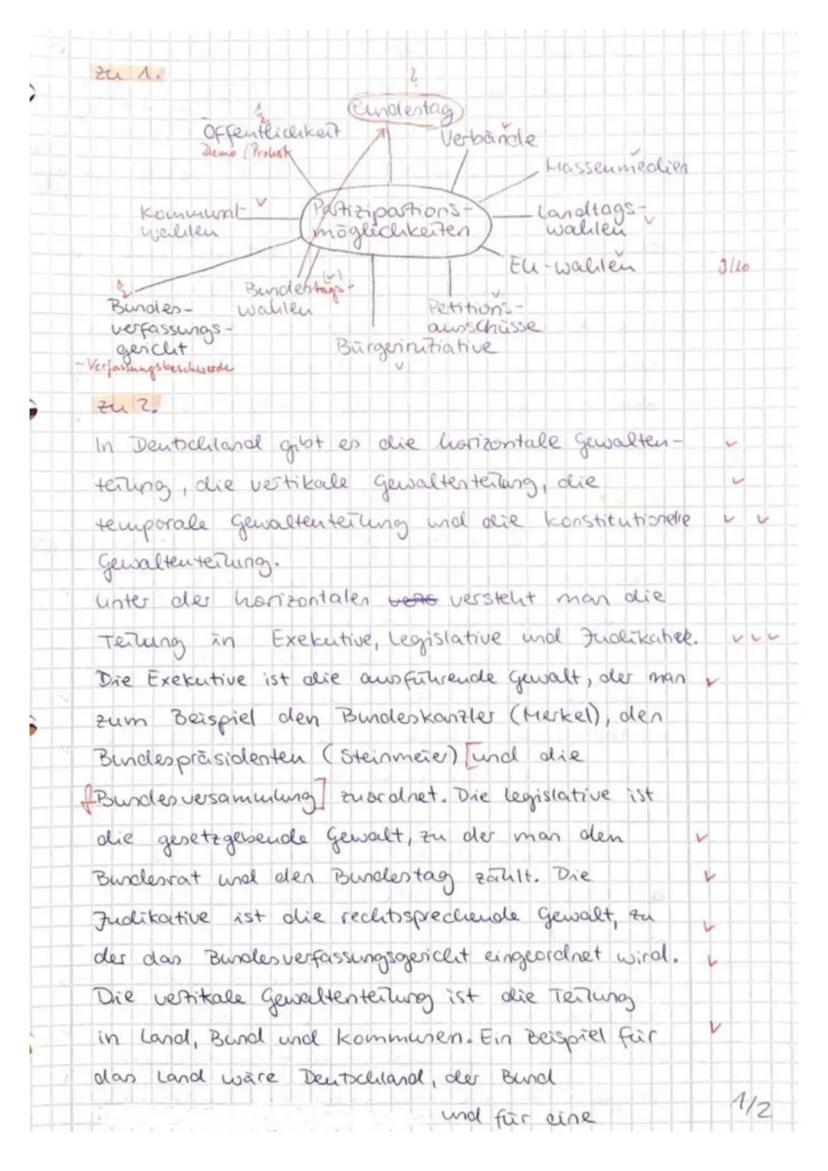 zu 1.
?
Bundestag
Öffentlichkeit
Demo / Protest
Verbände
Massenmedien
Kommunal-
wahlen
Partizipations-
möglichkeiten
Landtags-
wahlen
EU-wahlen
9/10
Bundes-
verfassungs-
gericht
- Verfassungsbeschwerde
Bundestags-
wahlen
Petitions-
ausschüsse
Bürgerinitiative
zu 2.
In Deutschland gibt es die horizontale Gewalten-
teilung, die vertikale Gewaltenteilung, die
temporale Gewaltenteilung und die konstitutionelle
Gewaltenteilung.
Unter der horizontalen versteht man die
Teilung in Exekutive, Legislative und Judikative.
Die Exekutive ist die ausführende Gewalt, der man
zum Beispiel den Bundeskanzler (Merkel), den
Bundespräsidenten (Steinmeier) [und die
f Bundesversammlung] zuordnet. Die Legislative ist
die gesetzgebende Gewalt, zu der man den
Bundesrat und den Bundestag zählt. Die
Judikative ist die rechtsprechende Gewalt, zu
der das Bundesverfassungsgericht eingeordnet wird.
Die vertikale Gewaltenteilung ist die Teilung
in Land, Bund und Kommunen. Ein Beispiel für
das Land wäre Deutschland, der Bund
und für eine
1/2